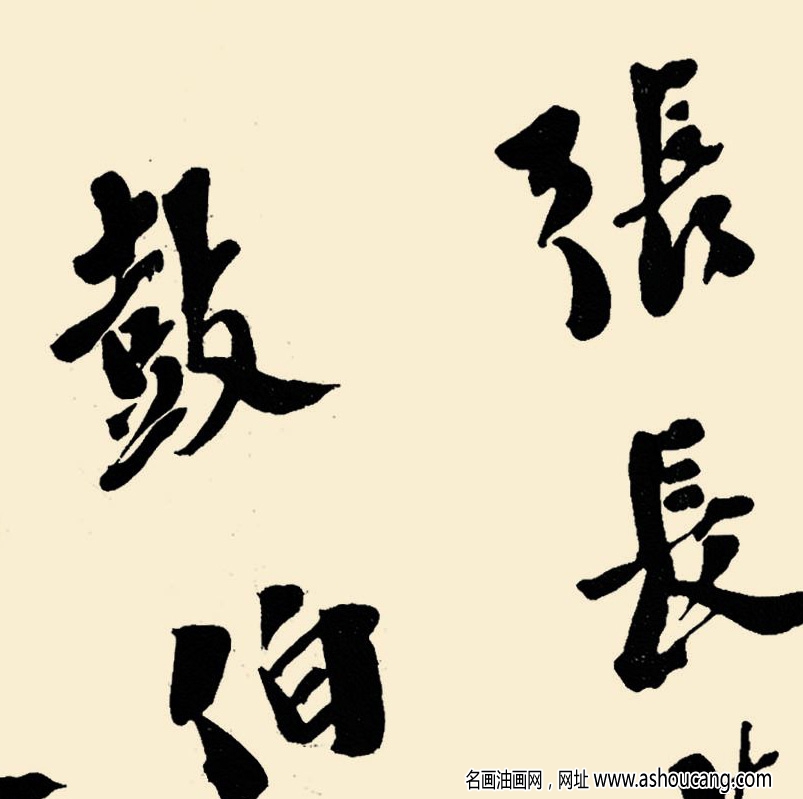 張長
鼓伯
名画油画网，网址 www.ashoucang.com